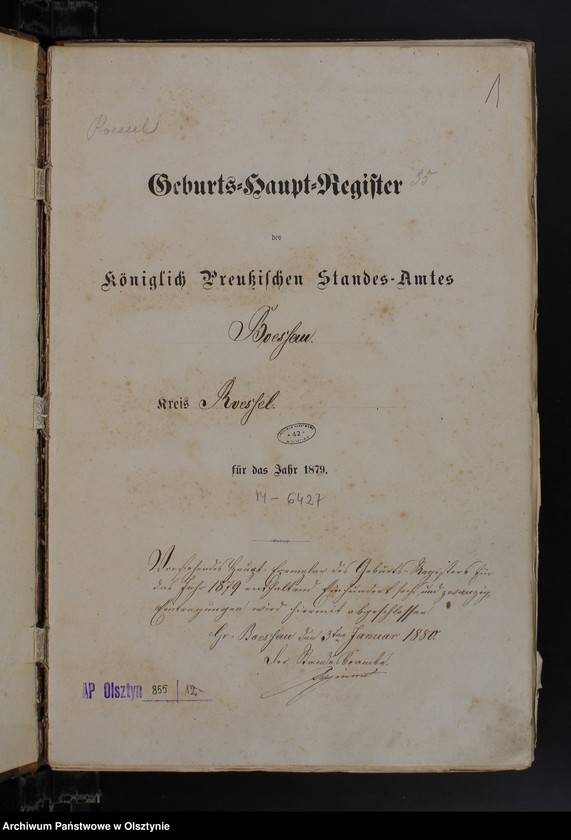 1
Roessel
Geburts-Haupt-Register 35
des
Königlich Preußischen Standes-Amtes
Boessau.
Kreis Roessel.
42
für das Jahr 1879.
M - 6427
Vorstehendes Haupt-Exemplar des Geburts-Registers für
das Jahr 1879 enthaltend Einhundert sechs und zwanzig
Eintragungen wird hiermit abgeschlossen
Gr. Boessau den 3ten Januar 1880
Der Standesbeamte.
AP Olsztyn 855 A2.
Archiwum Państwowe w Olsztynie